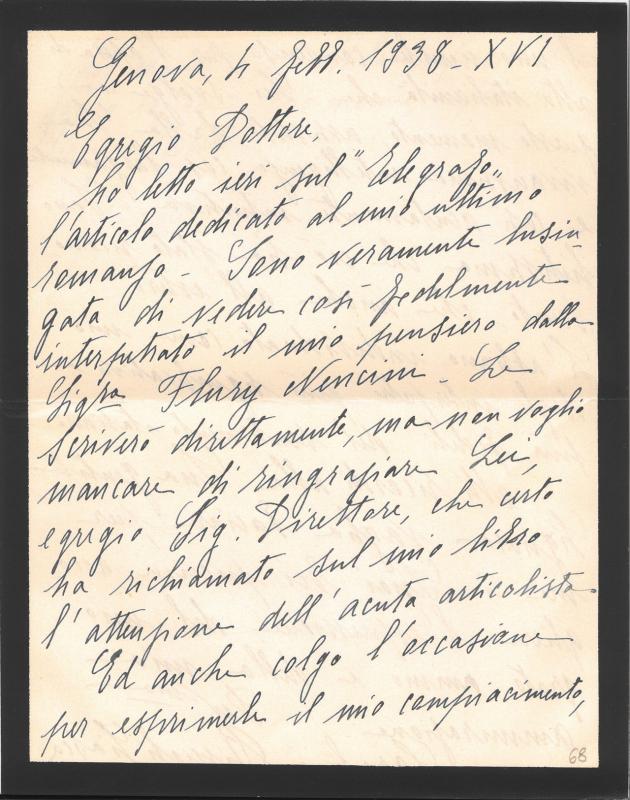 Genova, 4 febb. 1938 - XVI
Egregio Dottore,
ho letto ieri sul "Telegrafo"
l'articolo dedicato al mio ultimo
romanzo - Sono veramente lusin-
gata di vedere così fedelmente
interpretato il mio pensiero dalla
Sig.ra Flury Nencini - Le
scriverò direttamente, ma non voglio
mancare di ringraziare Lei,
egregio Sig. Direttore, che certo
ha richiamato sul mio libro
l'attenzione dell'acuta articolista
Ed anche colgo l'occasione
per esprimerle il mio compiacimento,
68